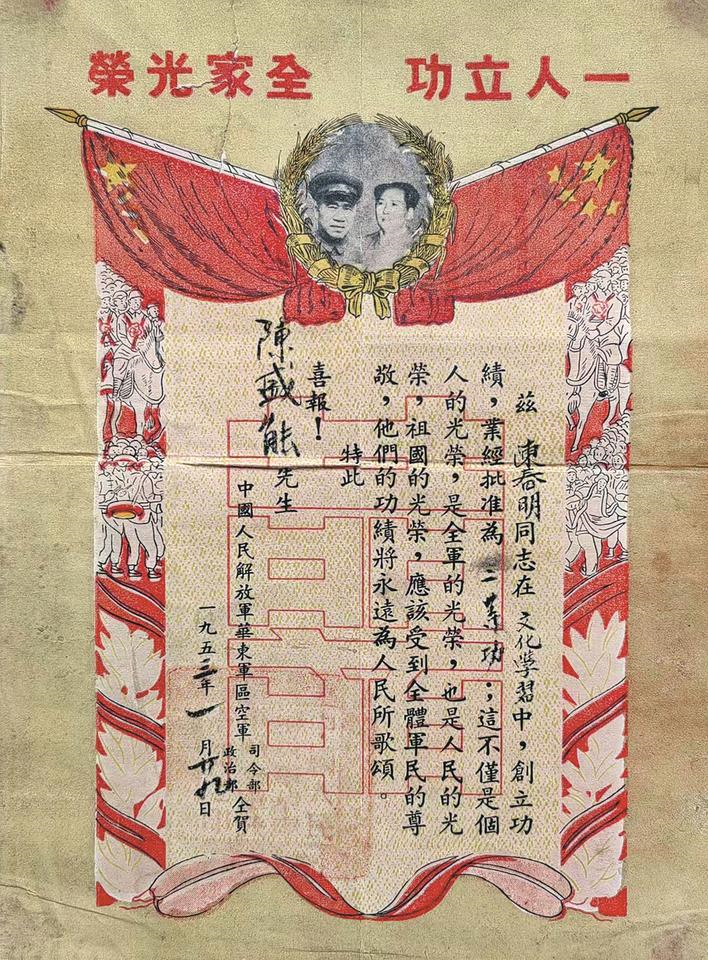 一人立功　全家光榮
茲　陳春明同志在　文化學習中，創立功
績，業經批准為二等功；這不僅是個
人的光榮，是全軍的光榮，也是人民的光
榮，祖國的光榮，應該受到全體軍民的尊
敬，他們的功績將永遠為人民所歌頌。
特此
喜報！
陳盛能先生
中國人民解放軍華東軍區空軍司令部政治部仝賀
一九五三年一月廿九日